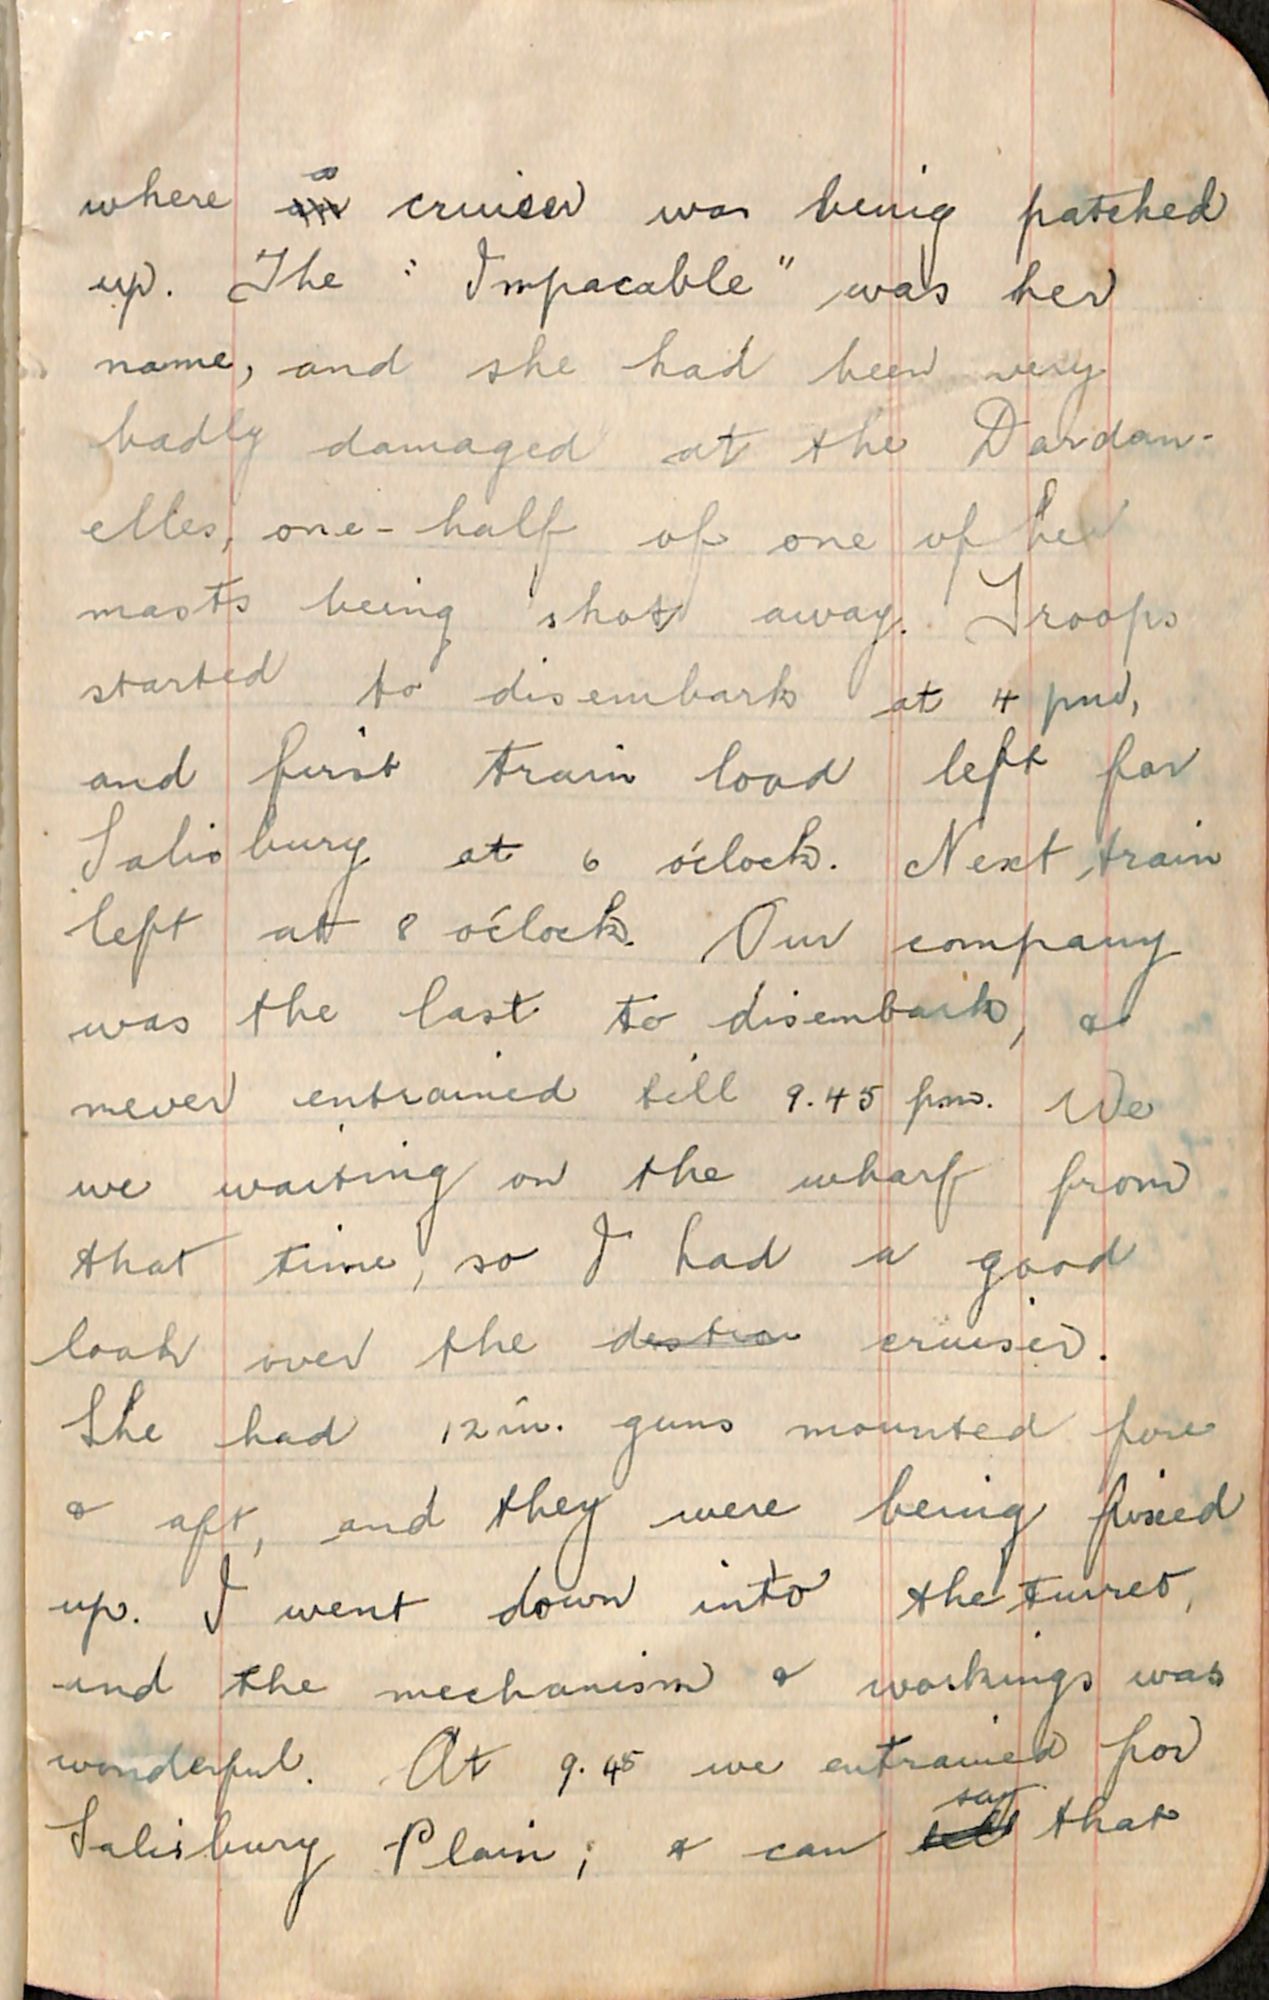 where a cruiser was being patched
up. The "Impacable" was her
name, and she had been very
badly damaged at the Dardan-
elles, one-half of one of her
masts being shot away. Troops
started to disembark at 4 pm,
and first train load left for
Salisbury at 6 o'clock. Next train
left at 8 o'clock. Our company
was the last to disembark, &
never entrained till 9.45 p.m. We
we waiting on the wharf from
that time, so I had a good
look over the destroy cruiser.
She had 12 in. guns mounted fore
& aft, and they were being fixed
up. I went down into the turret,
and the mechanism & workings was
wonderful. At 9.45 we entrained for
Salisbury Plain; & can tell say that